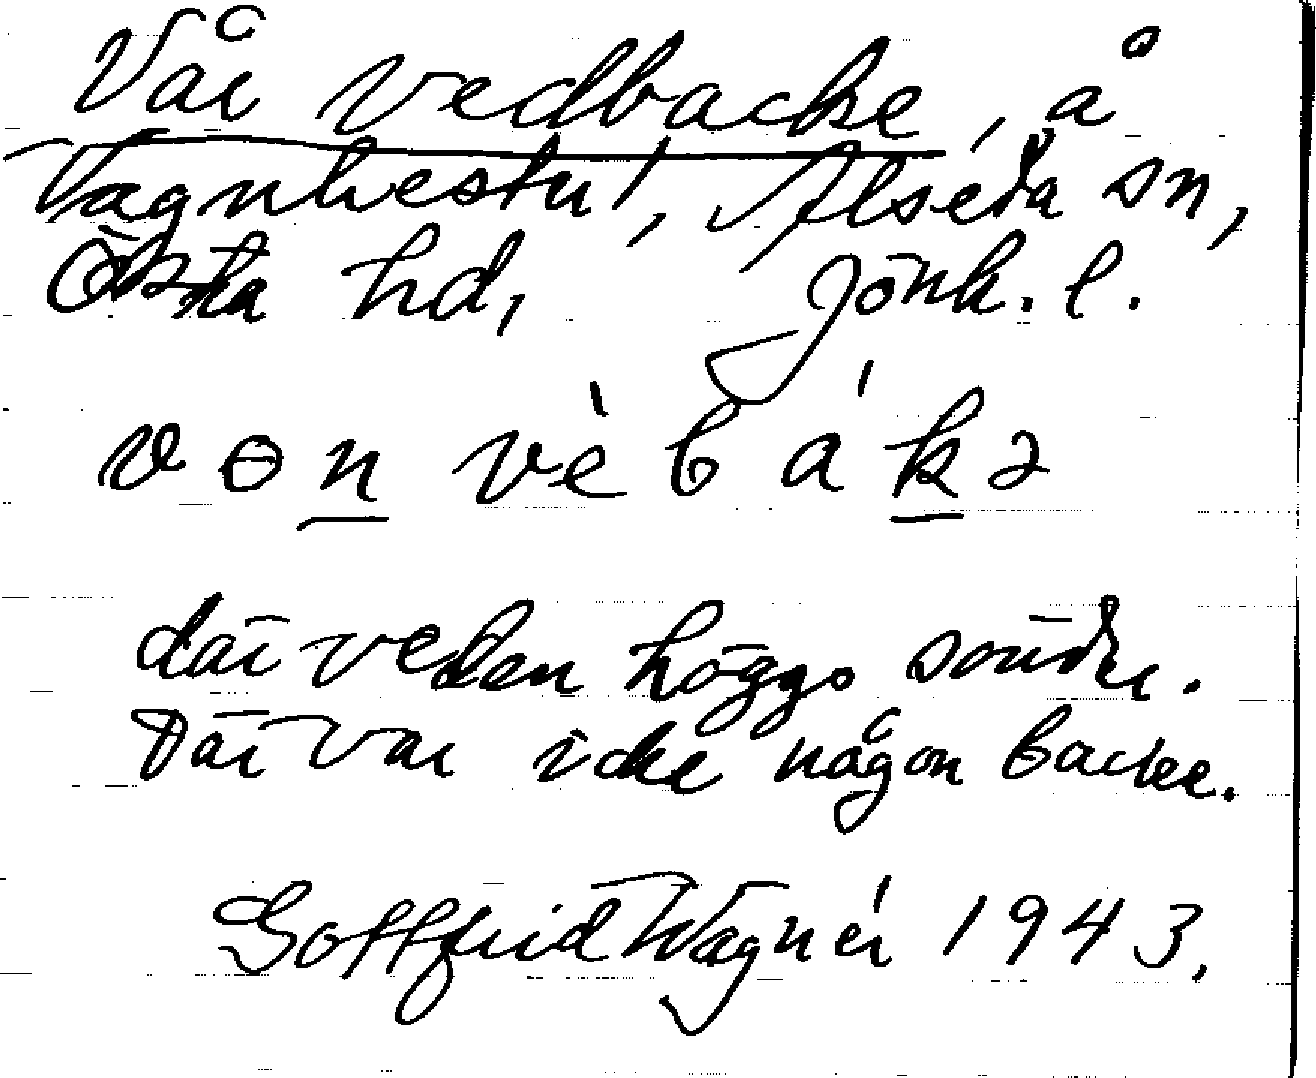 Vår vedbacke, å
Vagnhestu, Alseda sn,
Östra hd, Jönk. l.
v ɵ n vè b á k ə
där veden höggs sönder.
Där var icke någon backe.
Gottfrid Wagnér 1943.